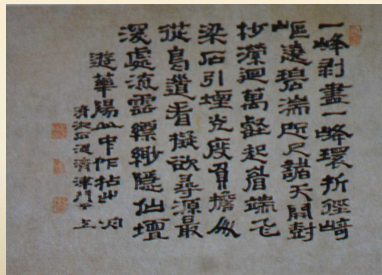 一峰剥盡一峰環折徑崎
嶇遶碧湍咫尺諸天開樹
杪瀠迴萬壑起眉端飛
梁石引煙光度負擔人
從鳥道看擬欲尋源最
深處流雲縹緲隱仙壇
遊華陽山中作拈此
石道濟